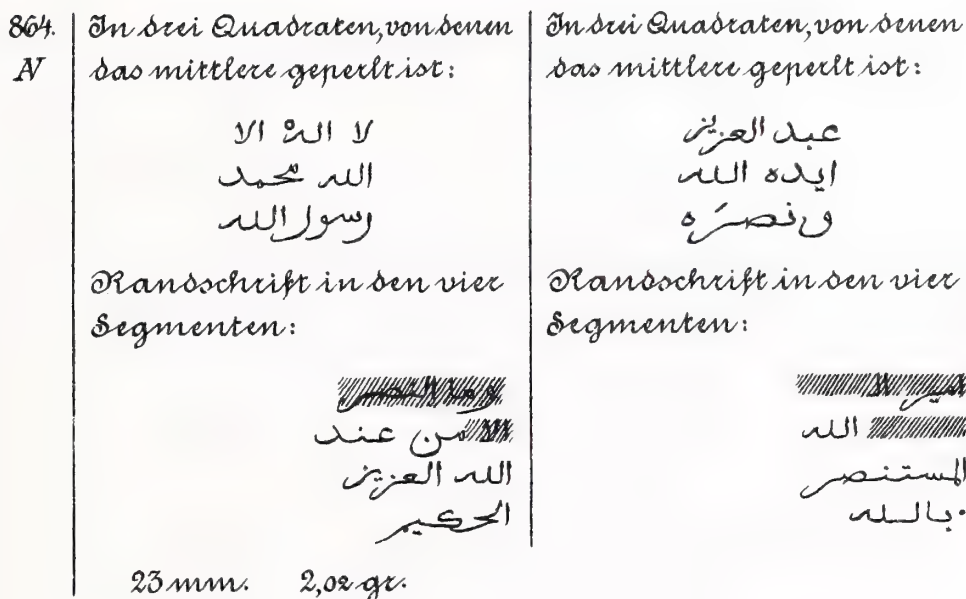 864. In drei Quadraten, von denen
N das mittlere geperlt ist:
لا اله الا
الله محمد
رسول الله
Randschrift in den vier
Segmenten:
وما النصر
الا من عند
الله العزيز
الحكيم
23 mm. 2,02 gr.
In drei Quadraten, von denen
das mittlere geperlt ist:
عبد العزيز
ايده الله
ونصَره
Randschrift in den vier
Segmenten:
امير
الله
المستنصر
بالله